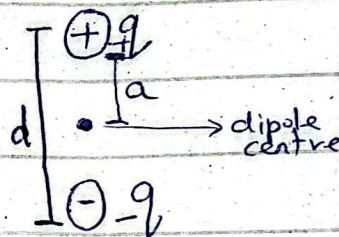 ⊕ +q
a
d
dipole
centre
⊖ -q